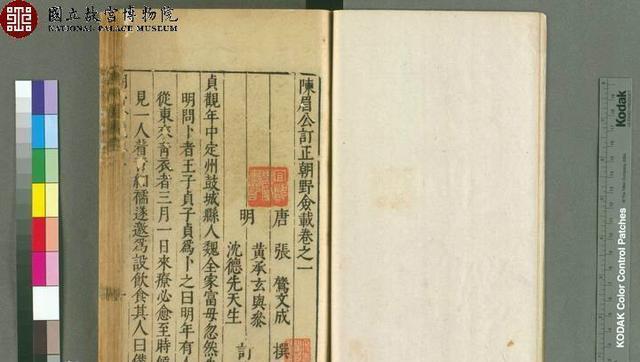 國立故宮博物院
NATIONAL PALACE MUSEUM
陳眉公訂正朝野僉載卷之一
唐 張 鷟文成 撰
黃承玄與參
明 訂
沈德先天生
貞觀年中定州鼓城縣人魏全家富母忽然
明問卜者王子貞子貞為卜之曰明年有
從東來青衣者三月一日來療必愈至時候
見一人着青紬襦遂邀為設飲食其人曰僕
Kodak
KODAK Color Control Patches